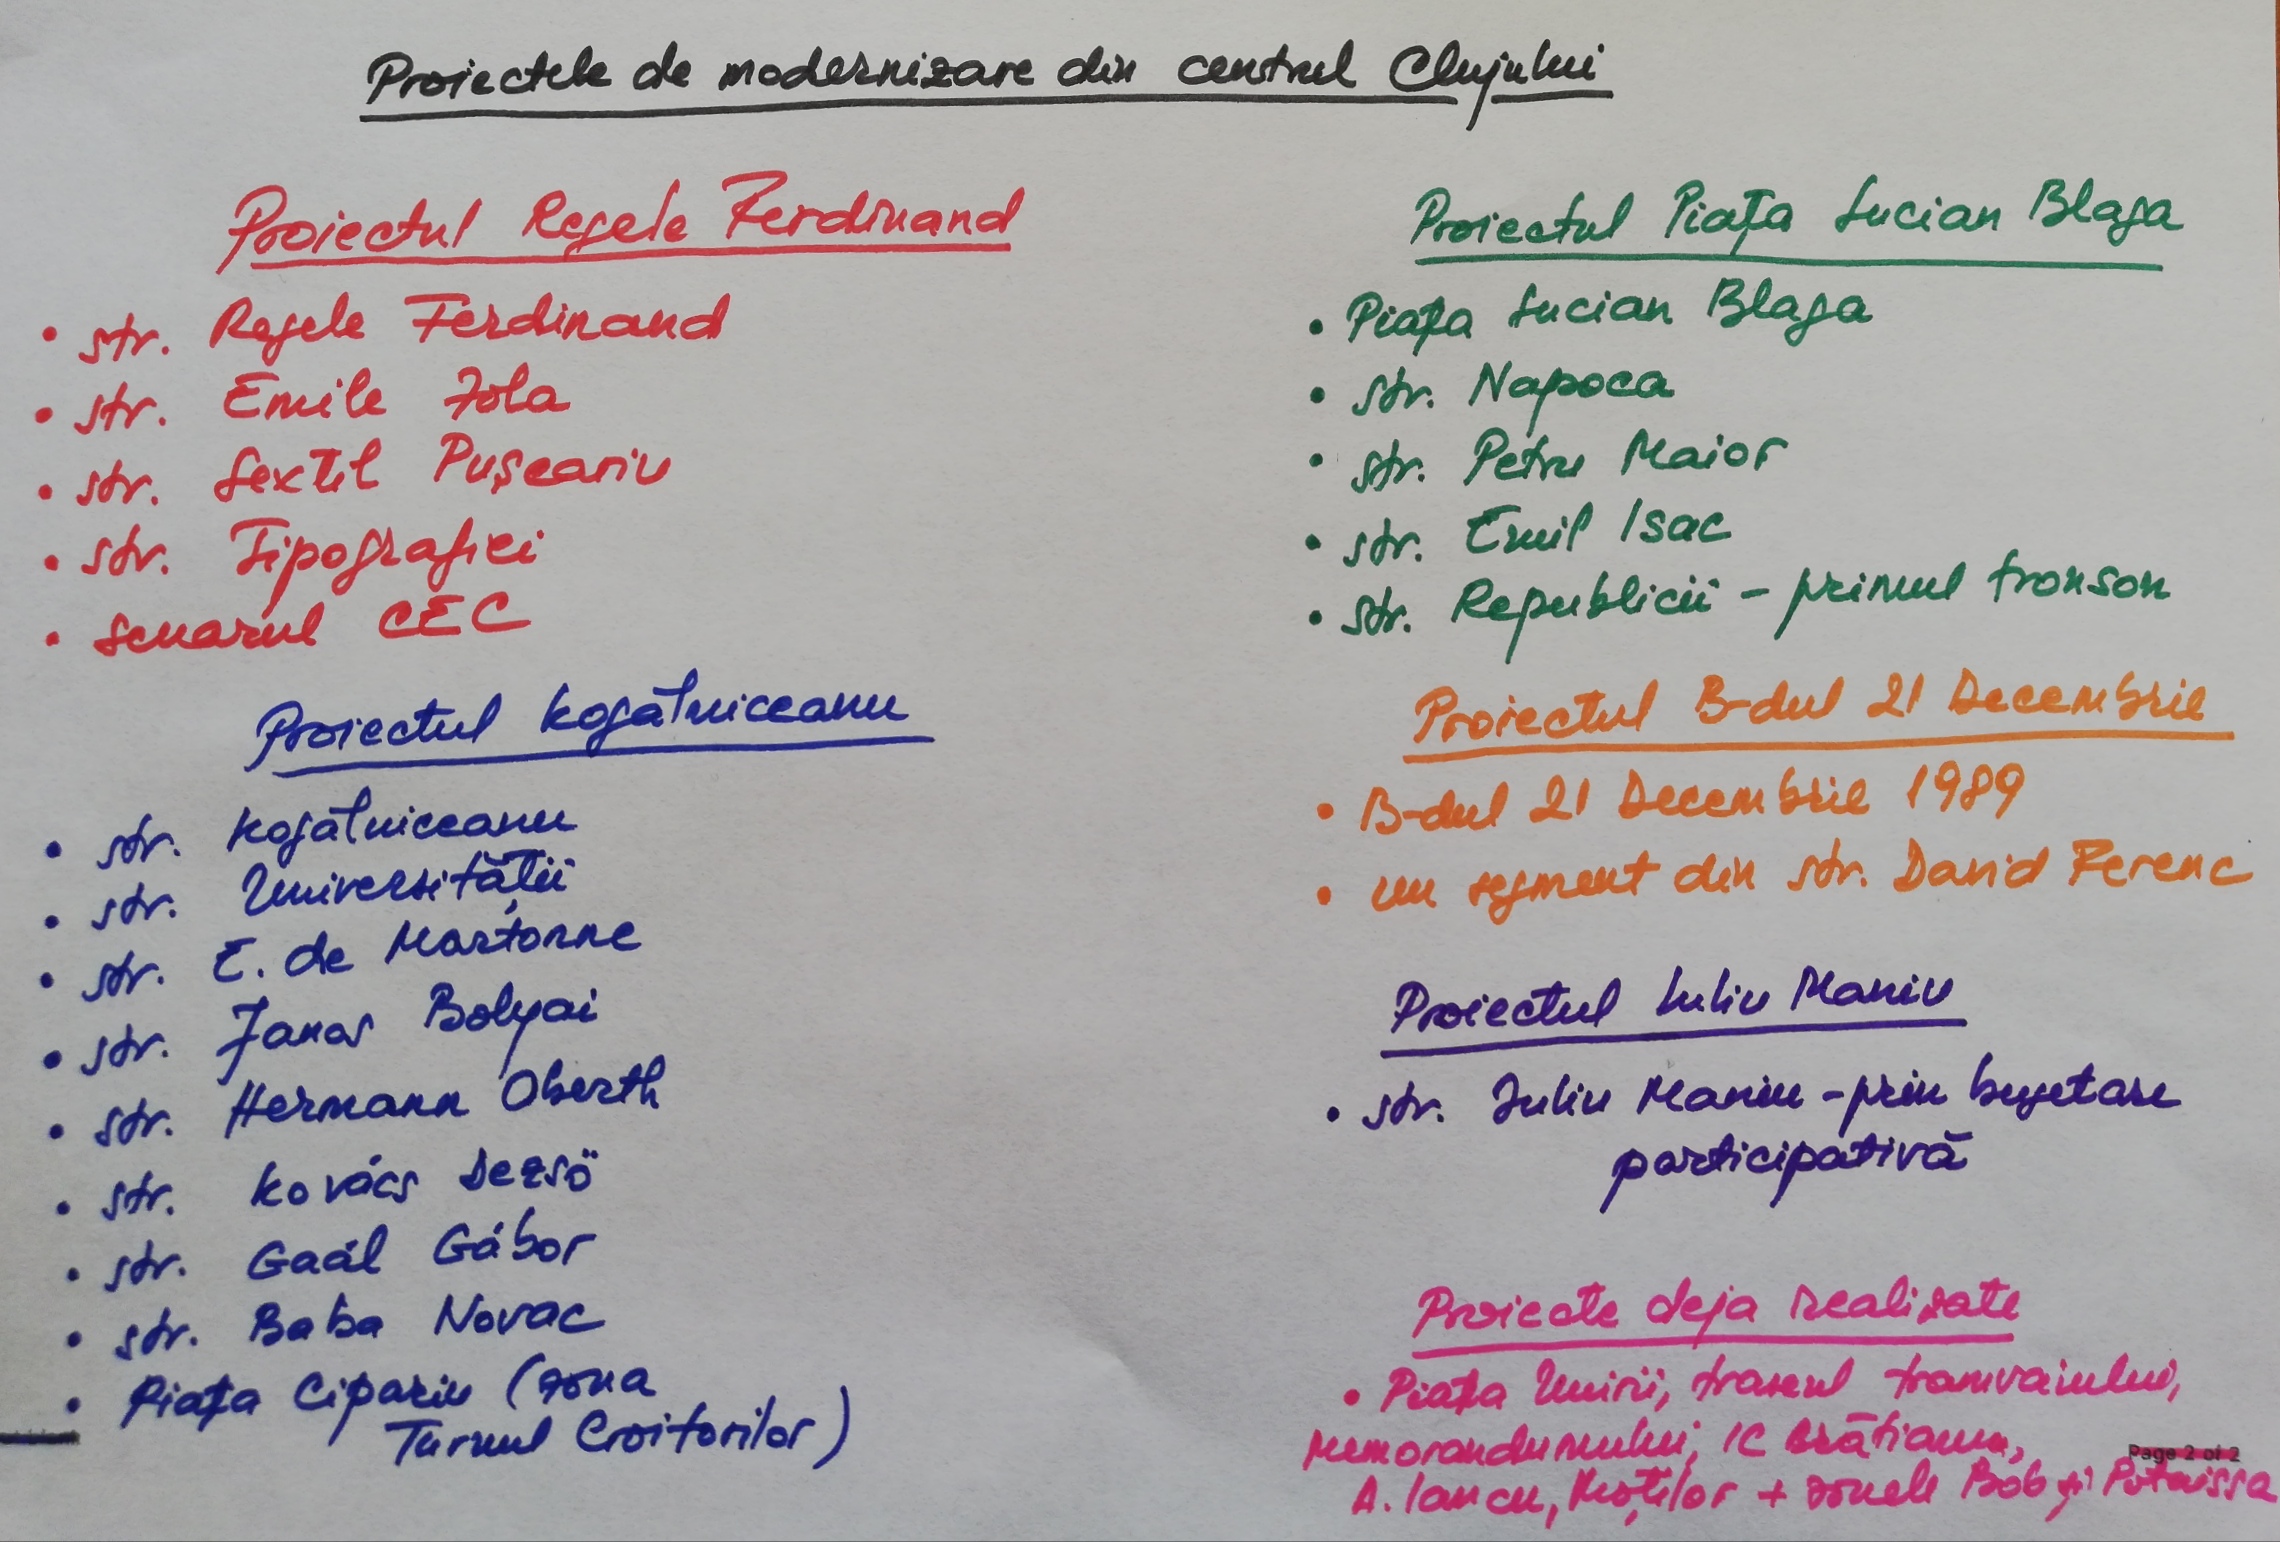 Proiectele de modernizare din centrul Clujului
Proiectul Regele Ferdinand
• str. Regele Ferdinand
• str. Emile Zola
• str. Sextil Pușcariu
• str. Tipografiei
• Scuarul CEC
Proiectul Kogălniceanu
• str. Kogălniceanu
• str. Universității
• str. E. de Martonne
• str. Janos Bolyai
• str. Hermann Oberth
• str. Kovács Dezső
• str. Gaál Gábor
• str. Baba Novac
• Piața Cipariu (zona
Turnul Croitorilor)
Proiectul Piața Lucian Blaga
• Piața Lucian Blaga
• str. Napoca
• str. Petru Maior
• str. Emil Isac
• str. Republicii - primul tronson
Proiectul B-dul 21 Decembrie
• B-dul 21 Decembrie 1989
• un segment din str. David Ferenc
Proiectul Iuliu Maniu
• str. Iuliu Maniu - prin bugetare
participativă
Proiecte deja realizate
• Piața Unirii, traseul tramvaiului,
Memorandumului, IC Brătianu,
A. Iancu, Moților + zonele Bób și Potaissa
Page 2 of 2